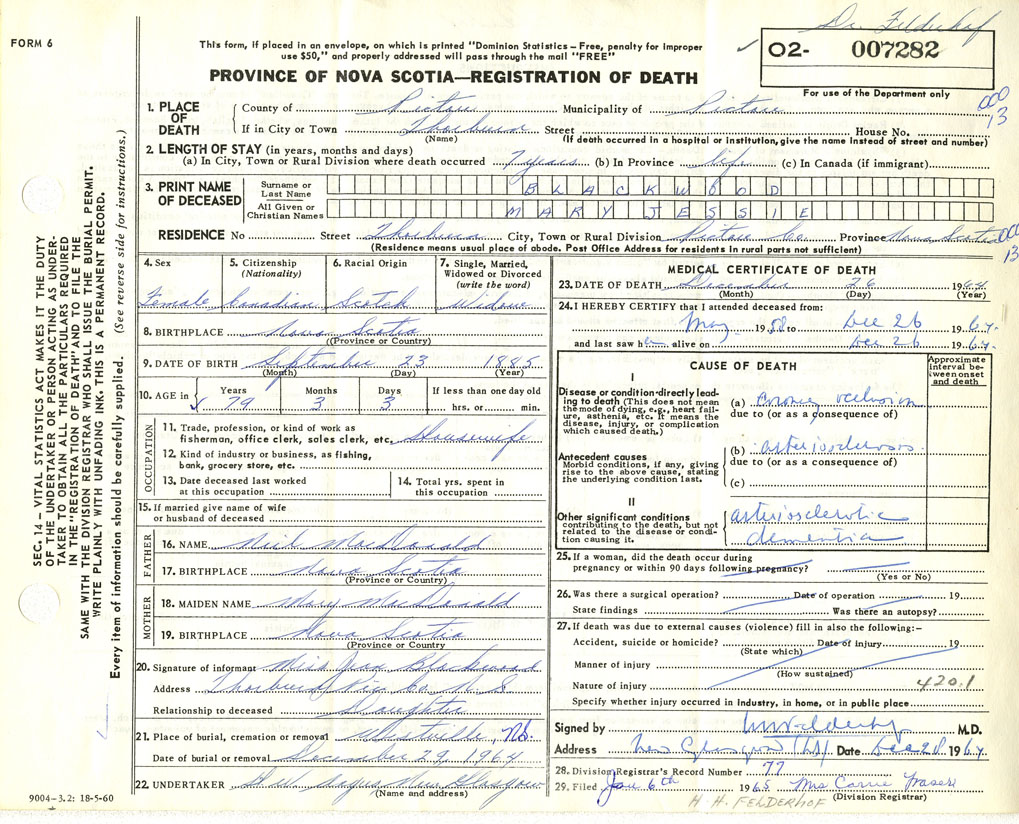 Dr. Felderhof
FORM 6
This form, if placed in an envelope, on which is printed "Dominion Statistics – Free, penalty for improper
use $50," and properly addressed will pass through the mail "FREE"
✓ O2- 007282
PROVINCE OF NOVA SCOTIA—REGISTRATION OF DEATH
For use of the Department only
000
13
1. PLACE OF DEATH
County of Pictou Municipality of Pictou
If in City or Town Thorburn Street House No.
(Name) (If death occurred in a hospital or institution, give the name instead of street and number)
2. LENGTH OF STAY (in years, months and days)
(a) In City, Town or Rural Division where death occurred 7 years (b) In Province life (c) In Canada (if immigrant)
3. PRINT NAME OF DECEASED
Surname or Last Name BLACKWOOD
All Given or Christian Names MARY JESSIE
RESIDENCE No Street Thorburn City, Town or Rural Division Pictou Co. Province Nova Scotia
000
13
(Residence means usual place of abode. Post Office Address for residents in rural parts not sufficient)
4. Sex
Female
5. Citizenship
(Nationality)
Canadian
6. Racial Origin
Scotch
7. Single, Married,
Widowed or Divorced
(write the word)
Widow
8. BIRTHPLACE Nova Scotia
(Province or Country)
9. DATE OF BIRTH September 23 1885
(Month) (Day) (Year)
10. AGE in Years Months Days If less than one day old
79 3 3 hrs. or min.
OCCUPATION
11. Trade, profession, or kind of work as
fisherman, office clerk, sales clerk, etc. Housewife
12. Kind of industry or business, as fishing,
bank, grocery store, etc.
13. Date deceased last worked
at this occupation
14. Total yrs. spent in
this occupation
15. If married give name of wife
or husband of deceased
FATHER
16. NAME Neil MacDonald
17. BIRTHPLACE Nova Scotia
(Province or Country)
MOTHER
18. MAIDEN NAME Mary MacDonald
19. BIRTHPLACE Nova Scotia
(Province or Country)
20. Signature of informant Miss Jean Blackwood
Address Thorburn Pic Co. N S
Relationship to deceased Daughter
21. Place of burial, cremation or removal Westville N.S.
Date of burial or removal December 29, 1964
22. UNDERTAKER New Glasgow
(Name and address)
MEDICAL CERTIFICATE OF DEATH
23. DATE OF DEATH December 26 1964
(Month) (Day) (Year)
24. I HEREBY CERTIFY that I attended deceased from:
May 1958 to Dec 26 1964
and last saw her alive on Dec 26 1964
CAUSE OF DEATH
Approximate
interval be-
tween onset
and death
I
Disease or condition directly lead-
ing to death (This does not mean
the mode of dying, e.g., heart fail-
ure, asthenia, etc. It means the
disease, injury, or complication
which caused death.)
(a) Coronary occlusion
due to (or as a consequence of)
Antecedent causes
Morbid conditions, if any, giving
rise to the above cause, stating
the underlying condition last.
(b) arteriosclerosis
due to (or as a consequence of)
(c)
II
Other significant conditions
contributing to the death, but not
related to the disease or condi-
tion causing it.
arteriosclerotic
dementia
25. If a woman, did the death occur during
pregnancy or within 90 days following pregnancy?
(Yes or No)
26. Was there a surgical operation? Date of operation 19
State findings Was there an autopsy?
27. If death was due to external causes (violence) fill in also the following:-
Accident, suicide or homicide? Date of injury 19
(State which)
Manner of injury
(How sustained)
Nature of injury 420.1
Specify whether injury occurred in Industry, in home, or in public place
Signed by HH Felderhof M.D.
Address New Glasgow Date Dec 28 1964
28. Division Registrar's Record Number 77
29. Filed Jan 6th 1965 Mrs Carrie Fraser
(Division Registrar)
H H. FELDERHOF
9004–3.2: 18-5-60
SEC. 14 – VITAL STATISTICS ACT MAKES IT THE DUTY
OF THE UNDERTAKER OR PERSON ACTING AS UNDER-
TAKER TO OBTAIN ALL THE PARTICULARS REQUIRED
IN THE "REGISTRATION OF DEATH" AND TO FILE THE
SAME WITH THE DIVISION REGISTRAR WHO SHALL ISSUE THE BURIAL PERMIT.
WRITE PLAINLY WITH UNFADING INK. THIS IS A PERMANENT RECORD.
Every item of information should be carefully supplied. (See reverse side for instructions.)